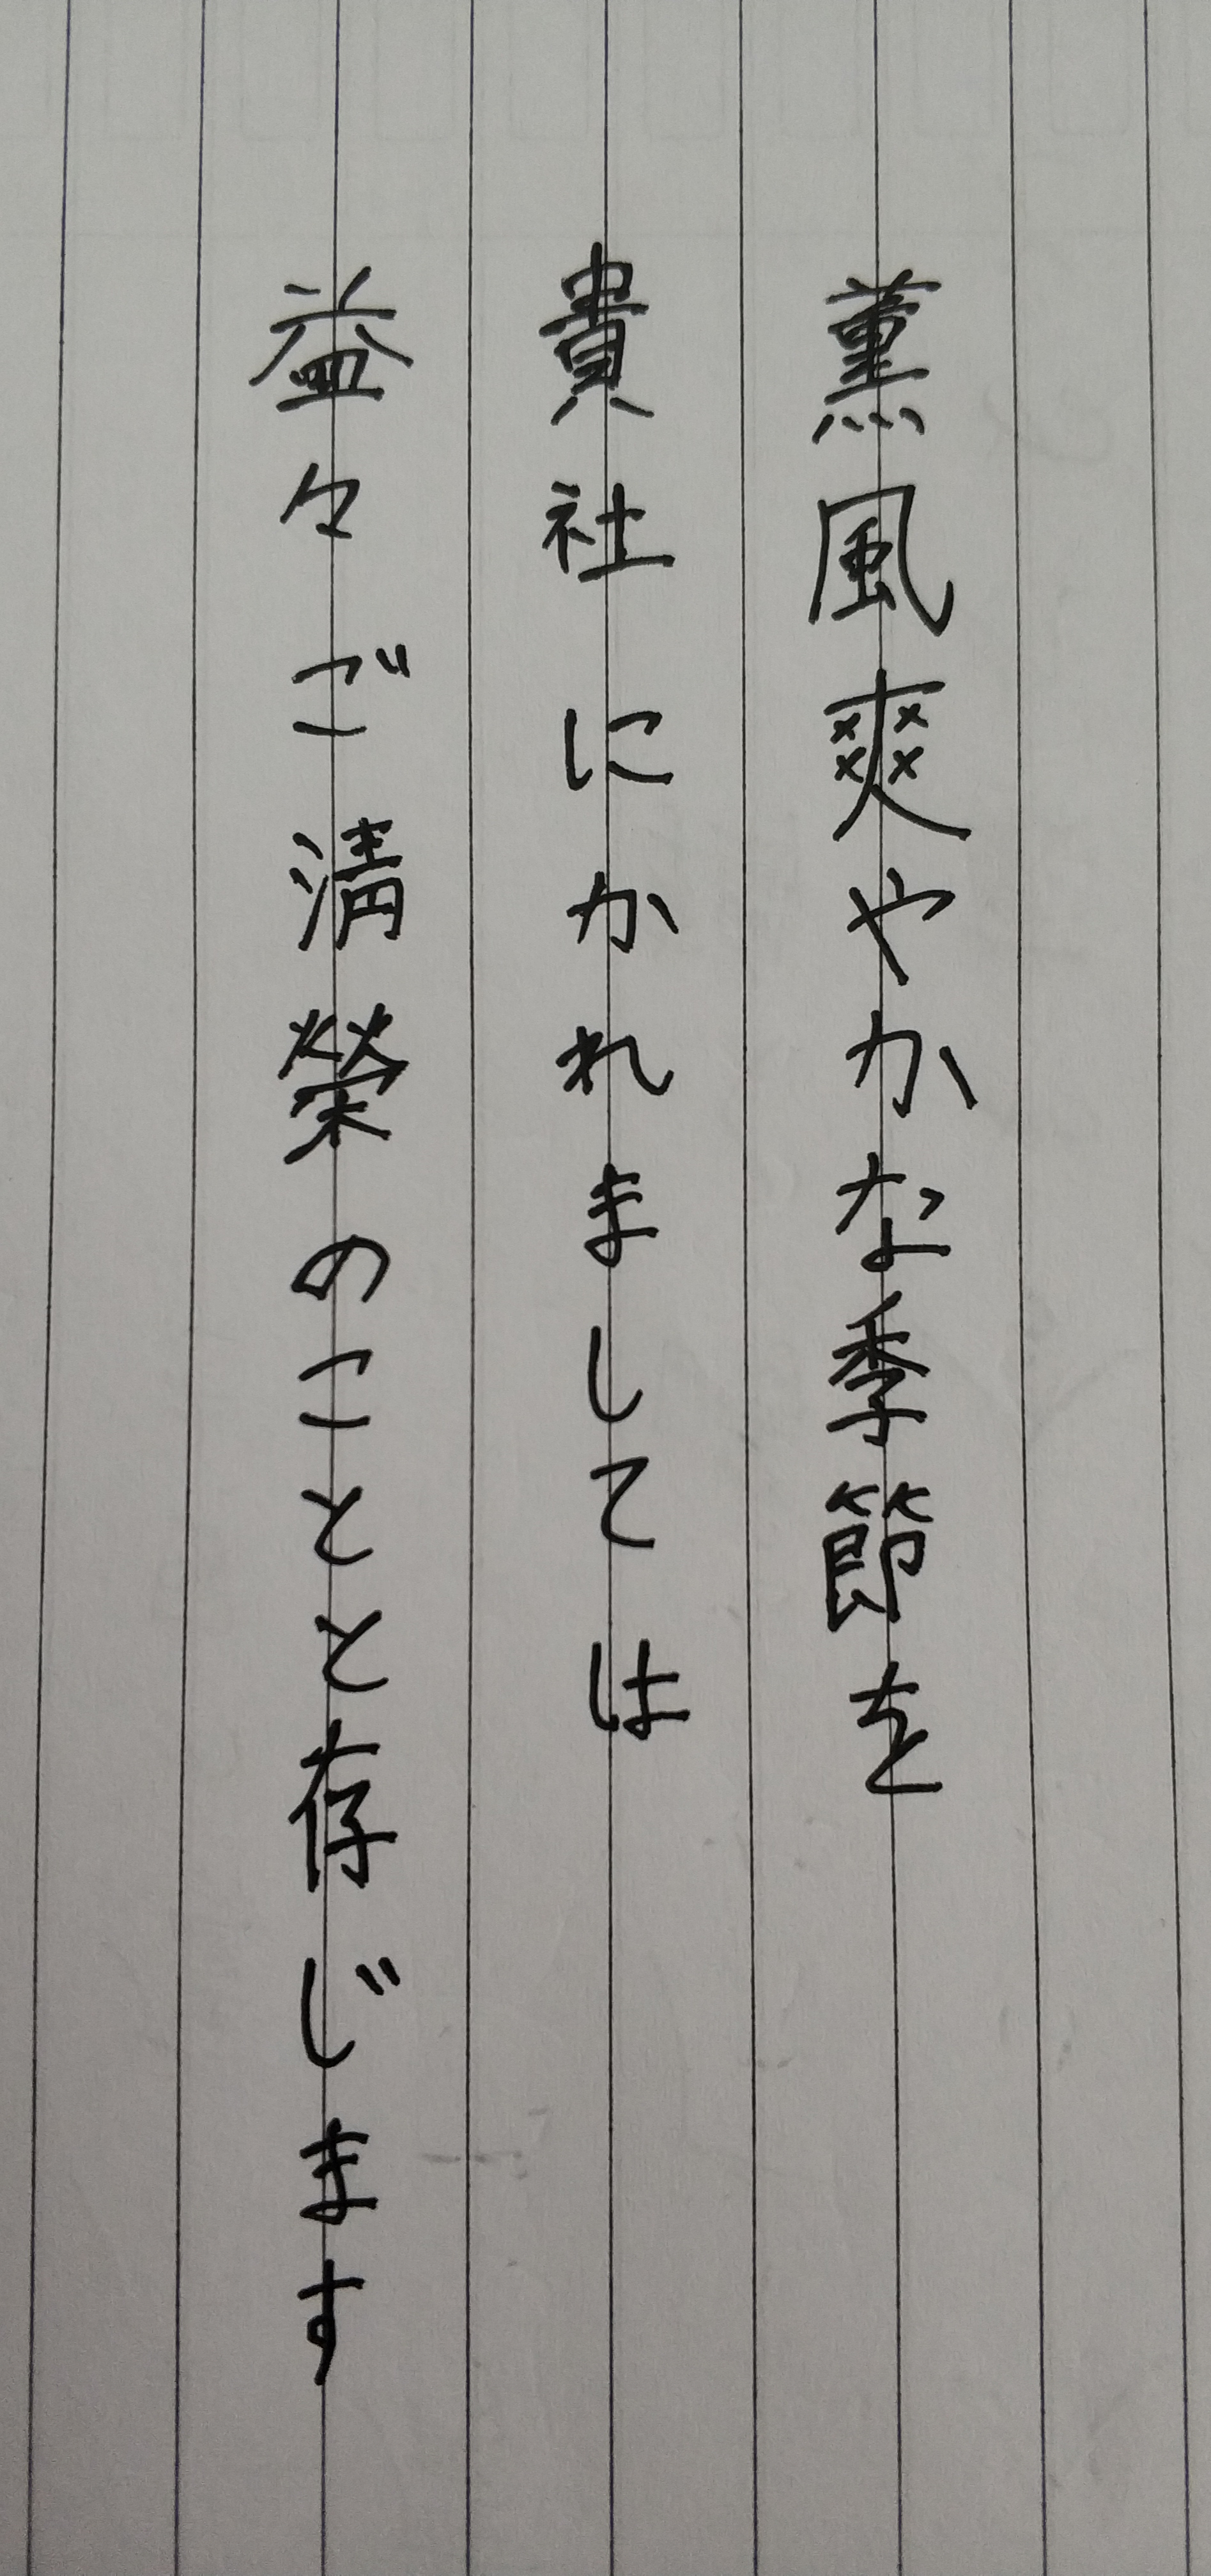 薫風爽やかな季節を
貴社にかれましては
益々ご清榮のことと存じます